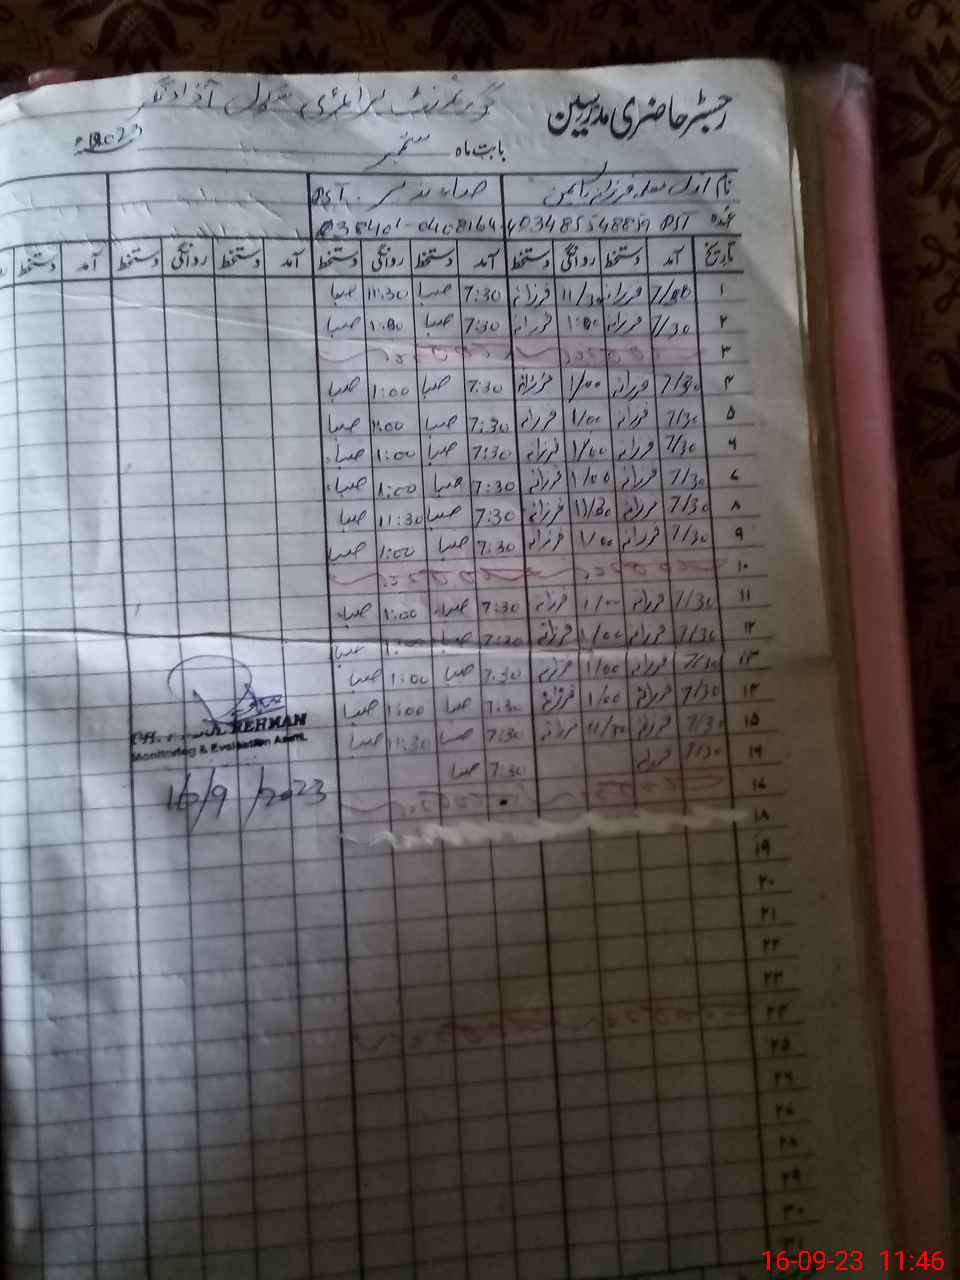 رجسٹر حاضری مدرسین گورنمنٹ پرائمری سکول آزاد نگر
بابت ماہ ستمبر 2023ء
نام PST
عہدہ PST
تاریخ آمد دستخط روانگی دستخط آمد دستخط روانگی دستخط آمد دستخط روانگی دستخط آمد دستخط
۱ 7/30 فرزانہ 11/30 فرزانہ 7:30 صبا 11:30 صبا
۲ 7/30 فرزانہ 1:00 فرزانہ 7:30 صبا 1:00 صبا
۳
۴ 7/30 فرزانہ 1/00 فرزانہ 7:30 صبا 1:00 صبا
۵ 7/30 فرزانہ 1/00 فرزانہ 7:30 صبا 1:00 صبا
۶ 7/30 فرزانہ 1/00 فرزانہ 7:30 صبا 1:00 صبا
۷ 7/30 فرزانہ 1/00 فرزانہ 7:30 صبا 1:00 صبا
۸ 7/30 فرزانہ 11/30 فرزانہ 7:30 صبا 11:30 صبا
۹ 7/30 فرزانہ 1/00 فرزانہ 7:30 صبا 1:00 صبا
۱۰
۱۱ 7/30 فرزانہ 1/00 فرزانہ 7:30 صبا 1:00 صبا
۱۲ 7/30 فرزانہ 1/00 فرزانہ 7:30 صبا 1:00 صبا
۱۳ 7/30 فرزانہ 1/00 فرزانہ 7:30 صبا 1:00 صبا
۱۴ 7/30 فرزانہ 1/00 فرزانہ 7:30 صبا 1:00 صبا
۱۵ 7/30 فرزانہ 11/30 فرزانہ 7:30 صبا 11:30 صبا
۱۶ 7/30 فرزانہ 7:30 صبا
۱۷
۱۸
۱۹
۲۰
۲۱
۲۲
۲۳
۲۴
۲۵
۲۶
۲۷
۲۸
۲۹
۳۰
۳۱
REHMAN
Monitoring & Evaluation Asstt.
16/9/2023
16-09-23 11:46